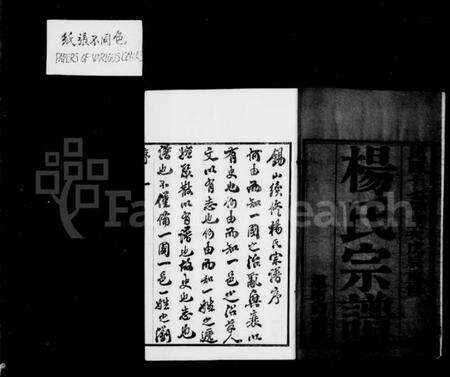 紙張不同色
PAPERS OF VARIOUS COLORS
楊氏宗譜
錫山續修楊氏宗譜序
何由而知一國之治亂興衰以
有史也何由而知一邑之沿革人
文以有志也何由而知一姓之遞
嬗聚散以有譜也故史也志也
譜也不僅備一國一邑一姓之瀏
序
一
FamilySearch